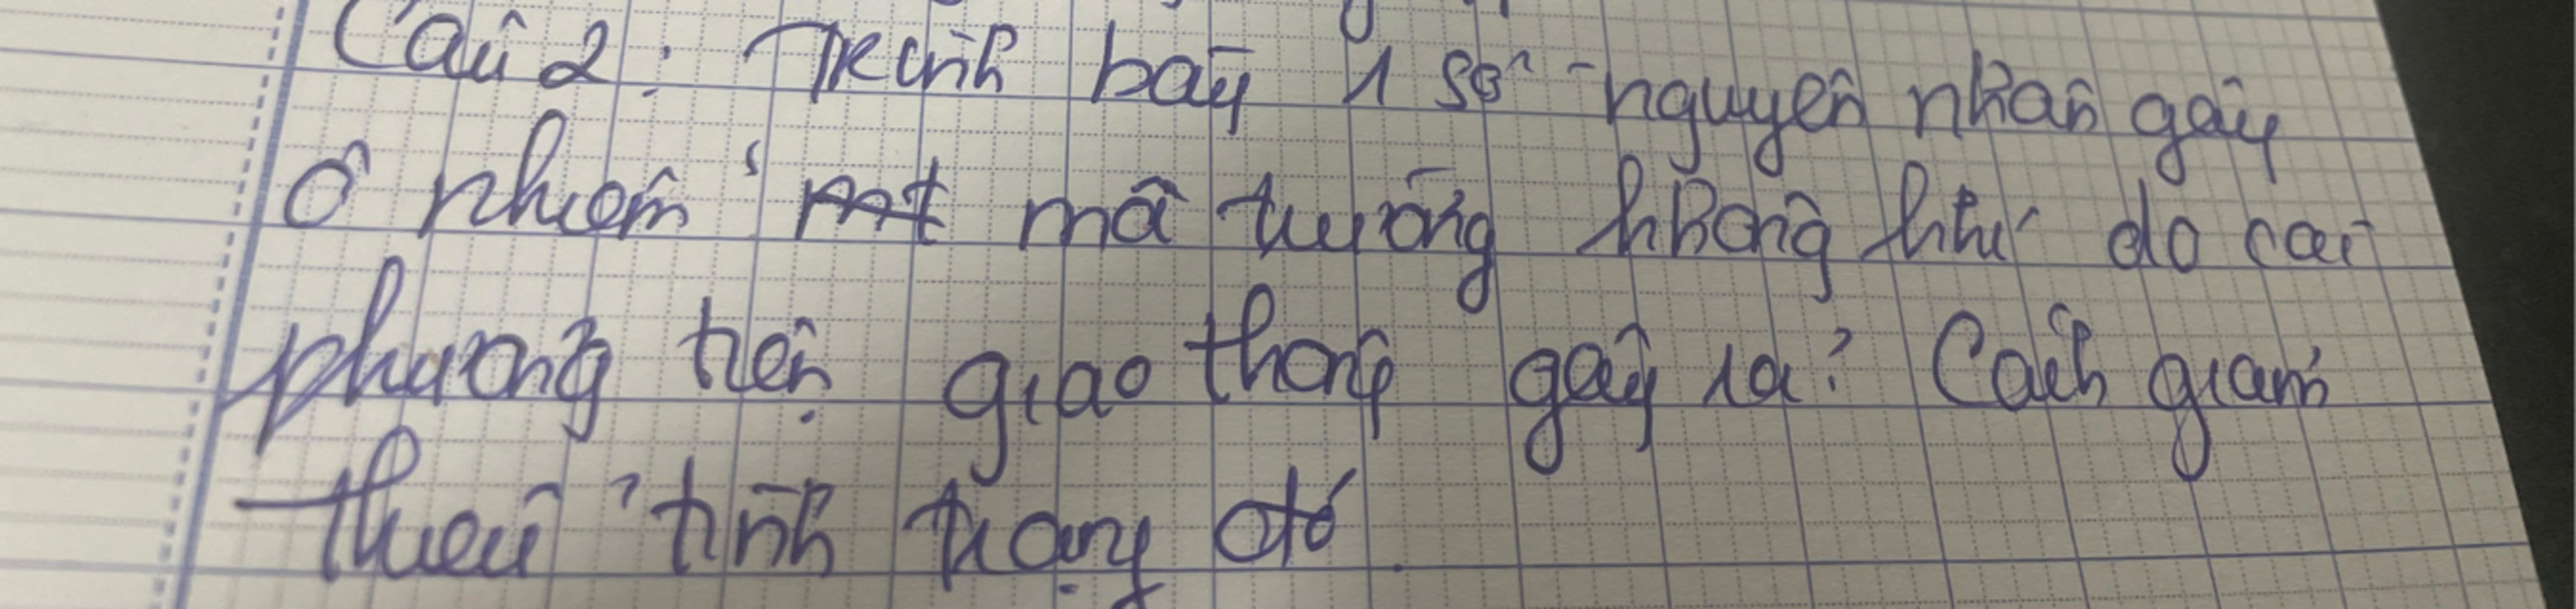 Câu 2: Trình bày 1 số nguyên nhân gây
ô nhiễm mt mà tường không khí do các
phương tiện giao thông gây ra? Cách giảm
thiểu tình trạng đó.